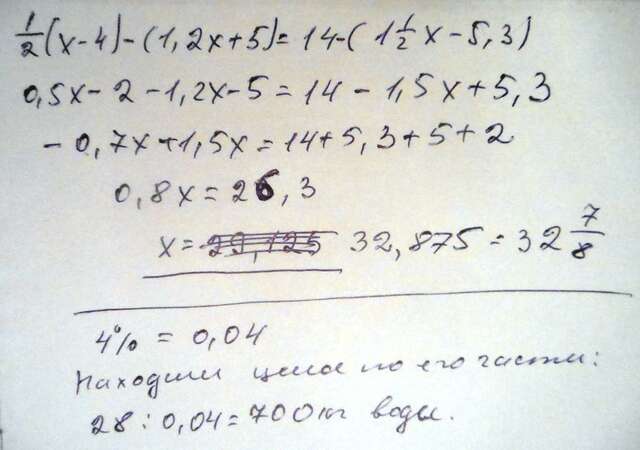 1/2(x-4)-(1,2x+5)=14-(1 1/2x-5,3)
0,5x-2-1,2x-5=14-1,5x+5,3
-0,7x+1,5x=14+5,3+5+2
0,8x=26,3
x=29,125 32,875=32 7/8
4%=0,04
Находим целое по его части:
28:0,04=700кг воды.